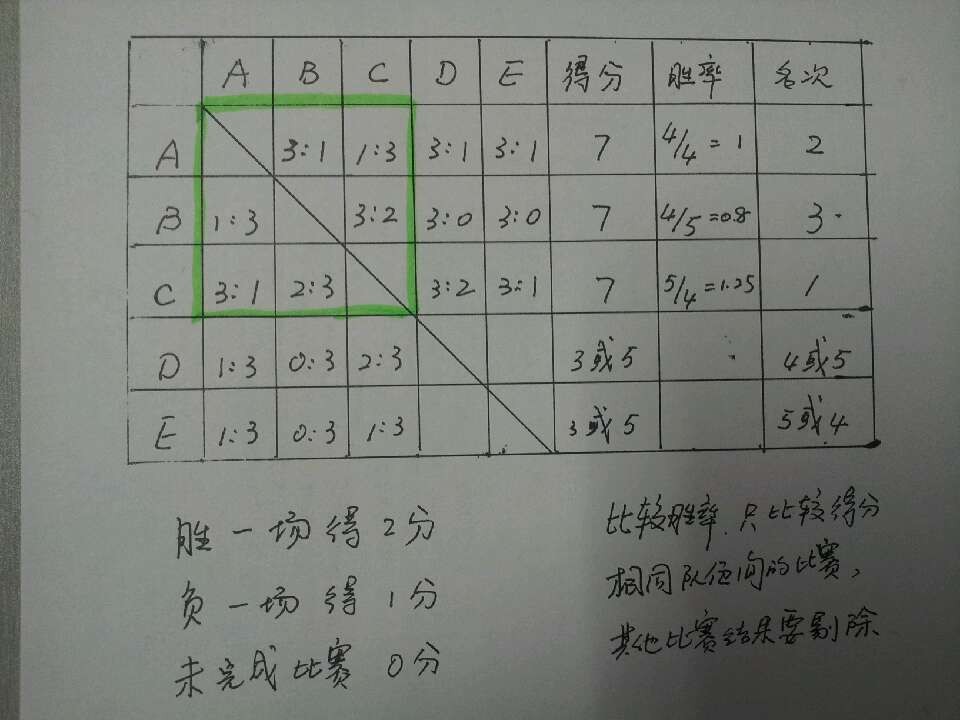 A B C D E 得分 胜率 名次
A 3:1 1:3 3:1 3:1 7 4/4=1 2
B 1:3 3:2 3:0 3:0 7 4/5=0.8 3
C 3:1 2:3 3:2 3:1 7 5/4=1.25 1
D 1:3 0:3 2:3 3或5 4或5
E 1:3 0:3 1:3 3或5 5或4
胜一场得2分
负一场得1分
未完成比赛0分
比较胜率,只比较得分
相同队伍间的比赛,
其他比赛结果要剔除